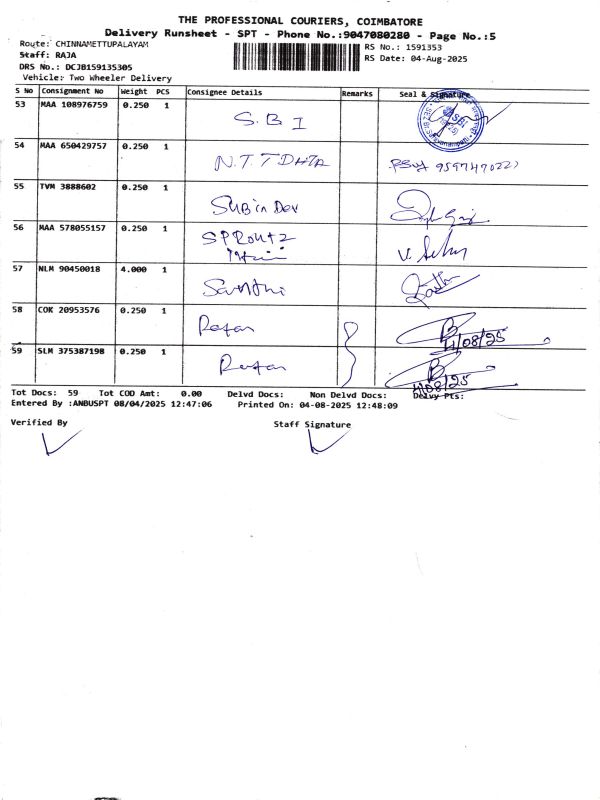 THE PROFESSIONAL COURIERS, COIMBATORE
Delivery Runsheet - SPT - Phone No.:9047080280 - Page No.:5
Route: CHINNAMETTUPALAYAM
RS No.: 1591353
Staff: RAJA
RS Date: 04-Aug-2025
DRS No.: DCJB159135305
Vehicle: Two Wheeler Delivery
S No Consignment No Weight PCS Consignee Details Remarks Seal & Signature
53 MAA 108976759 0.250 1 S.B I
54 MAA 650429757 0.250 1 N.T T DHTA
55 TVM 3888602 0.250 1 Subin Dev
56 MAA 578055157 0.250 1 SPRoutz
57 NLM 90450018 4.000 1 Santhi
58 COK 20953576 0.250 1 11/08/25
59 SLM 375387198 0.250 1 11/08/25
Tot Docs: 59 Tot COD Amt: 0.00 Delvd Docs: Non Delvd Docs: Delvy Pts:
Entered By :ANBUSPT 08/04/2025 12:47:06 Printed On: 04-08-2025 12:48:09
Verified By Staff Signature